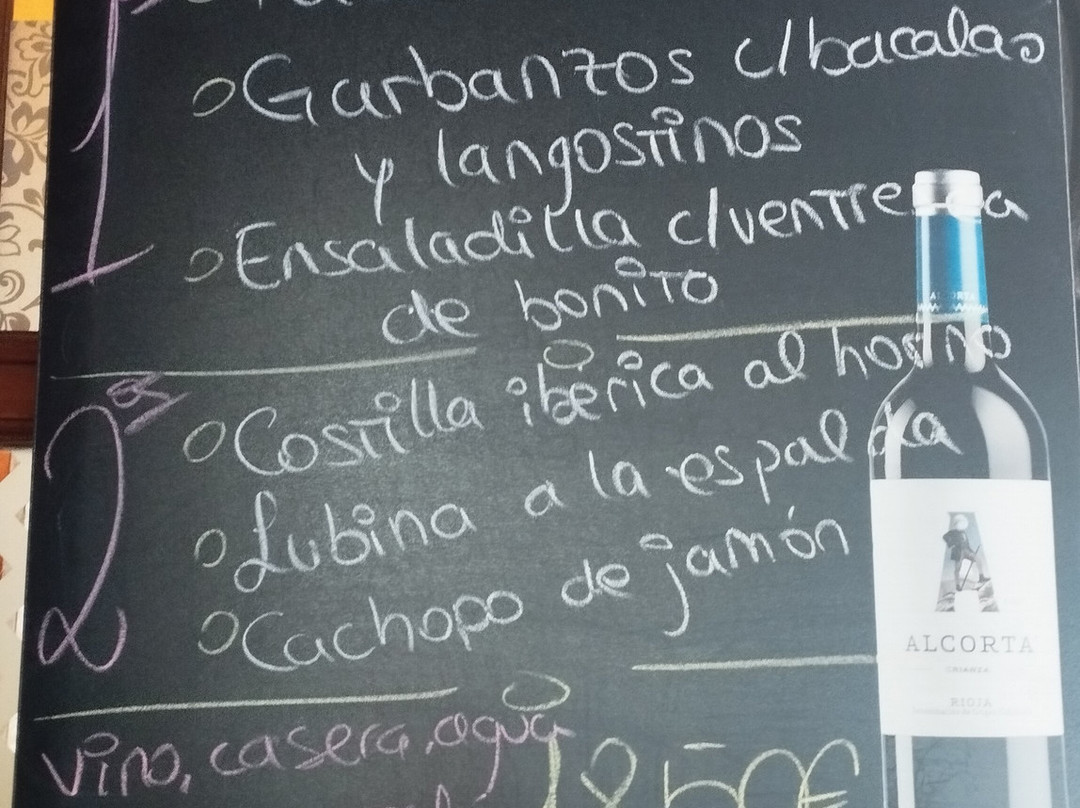 1
Garbanzos c/bacalao
y langostinos
Ensaladilla c/ventresca
de bonito
2os
Costilla ibérica al horno
Lubina a la espalda
Cachopo de jamón
vino, casera, agua
ALCORTA
ALCORTA
CRIANZA
RIOJA